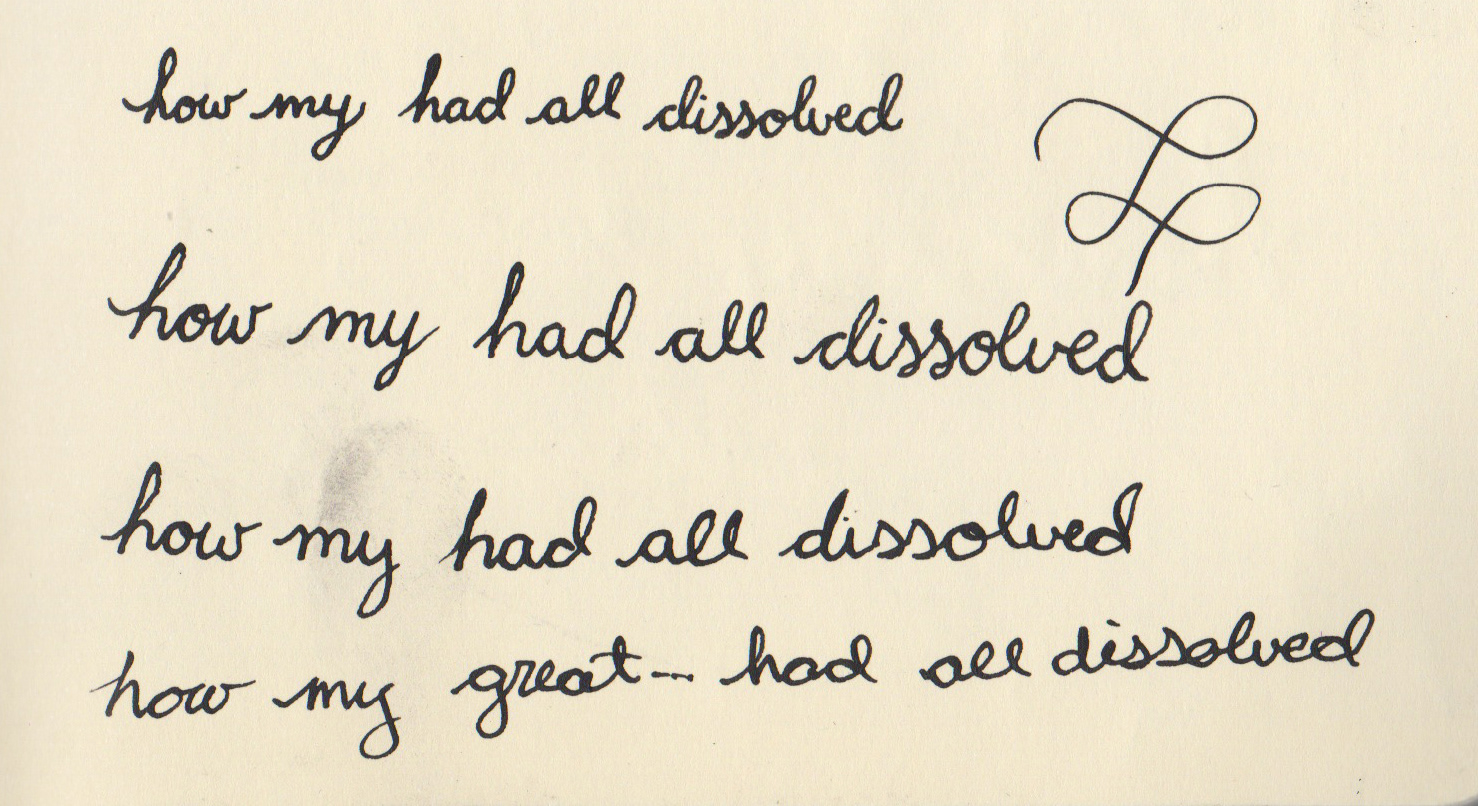 how my had all dissolved
how my had all dissolved
how my had all dissolved
how my great... had all dissolved